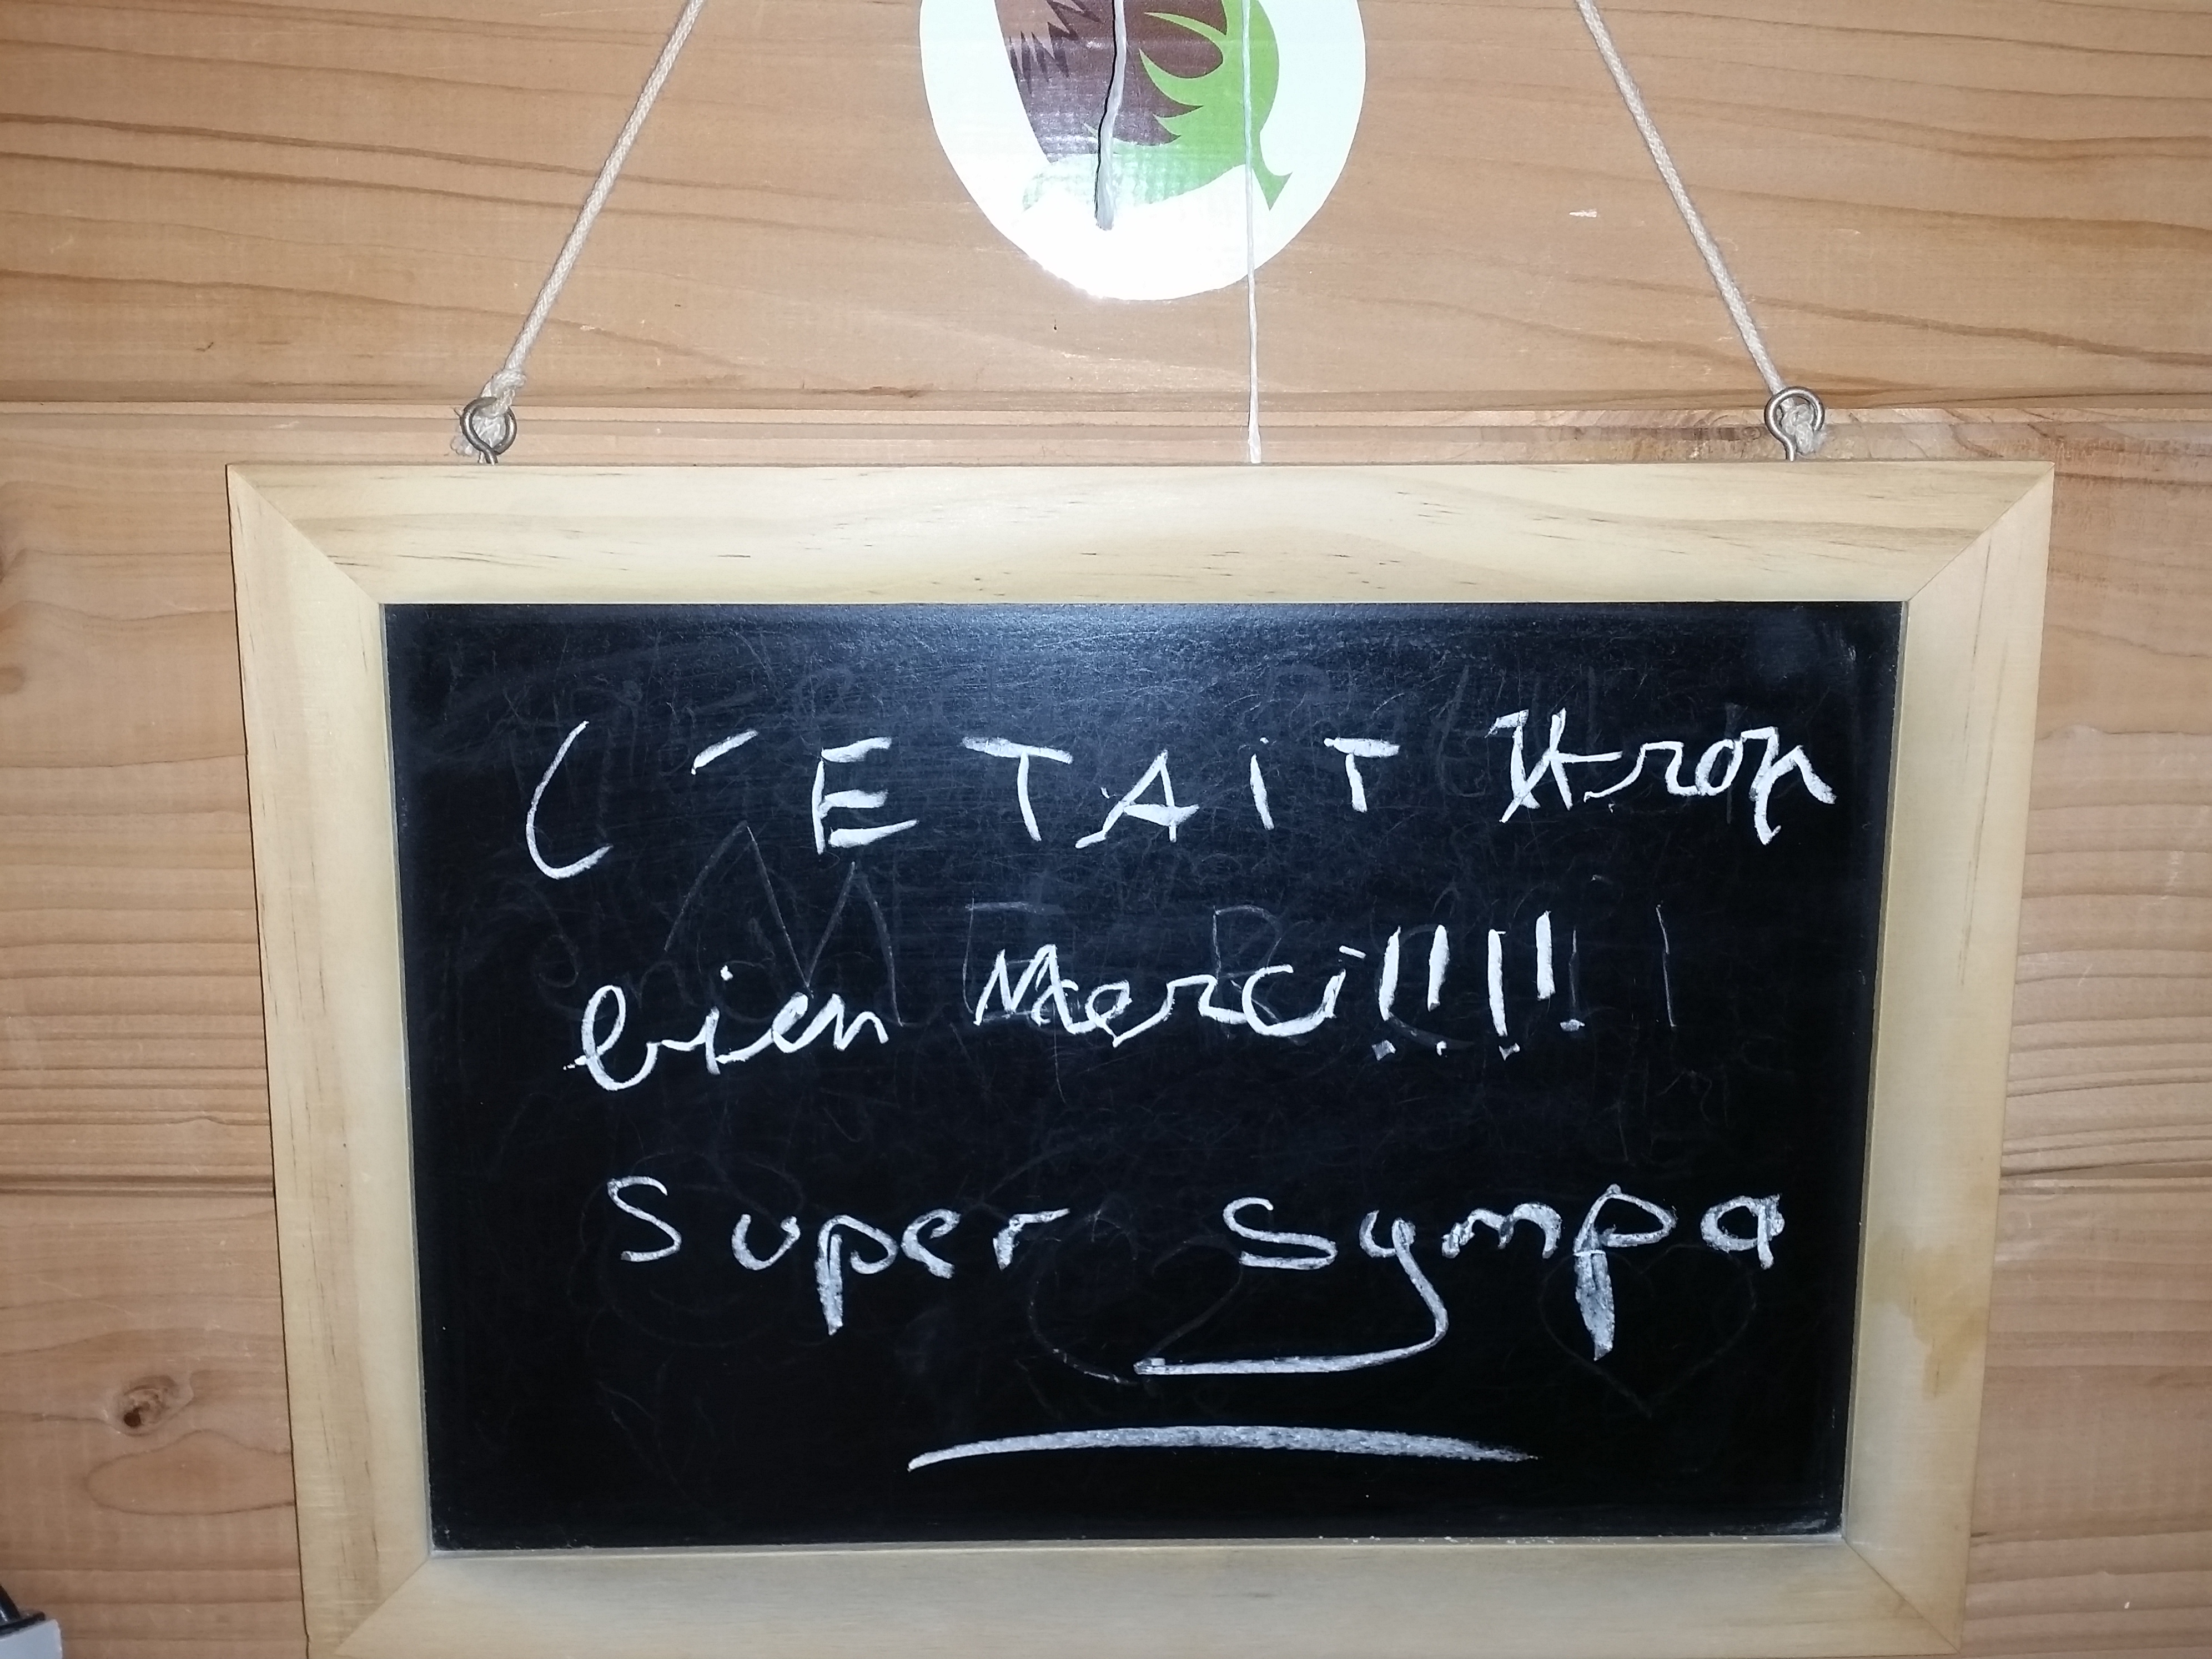 C'ETAiT trop
bien Merci!!!!
Super Sympa